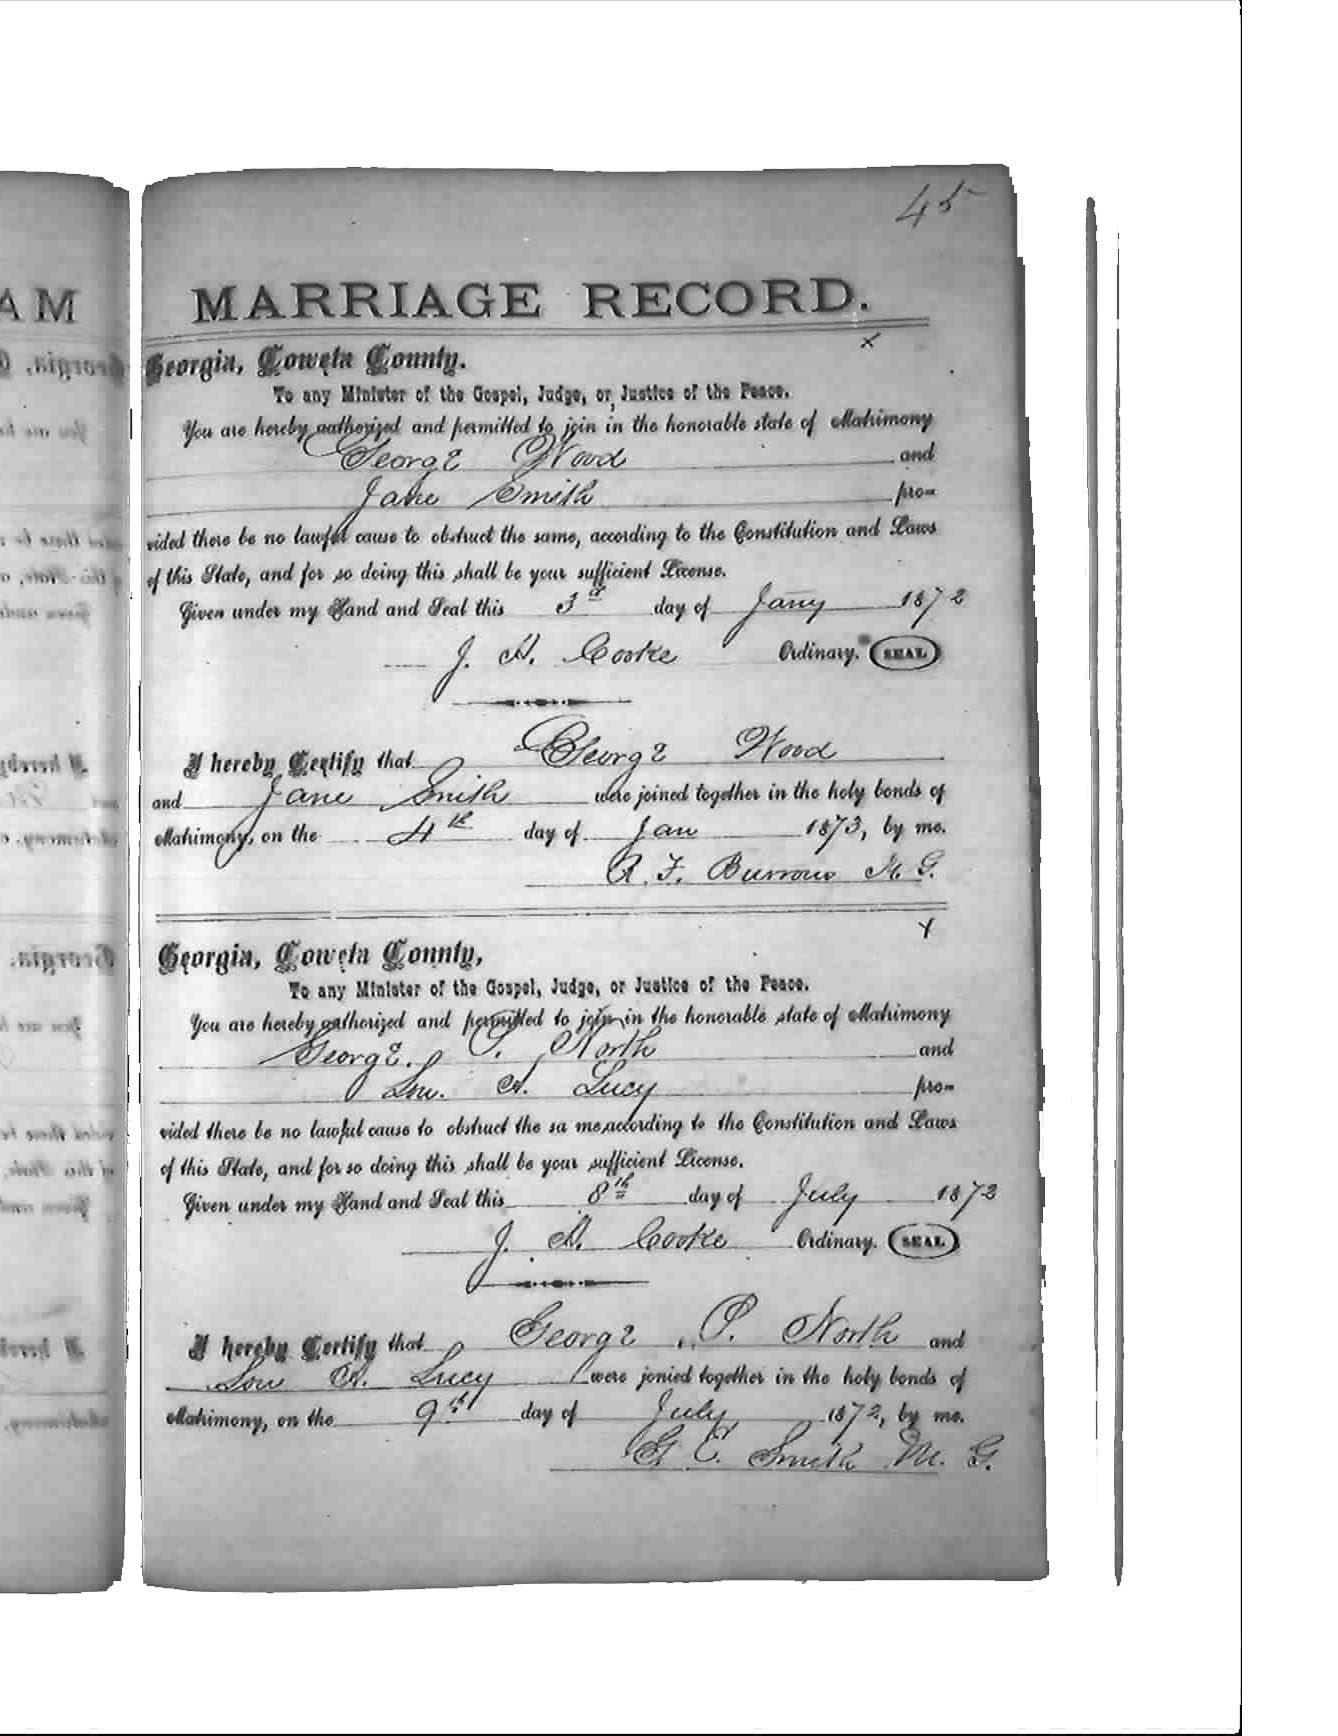 45
MARRIAGE RECORD.
x
Georgia, Coweta County.
To any Minister of the Gospel, Judge, or Justice of the Peace.
You are hereby authorized and permitted to join in the honorable state of Matrimony
George Wood and
Jane Smith pro-
vided there be no lawful cause to obstruct the same, according to the Constitution and Laws
of this State, and for so doing this shall be your sufficient License.
Given under my Hand and Seal this 3d day of Jany 1872
J. H. Cooke Ordinary. SEAL
I hereby Certify that George Wood
and Jane Smith were joined together in the holy bonds of
Matrimony, on the 4th day of Jan 1873, by me.
R. F. Burrows M. G.
x
Georgia, Coweta County,
To any Minister of the Gospel, Judge, or Justice of the Peace.
You are hereby authorized and permitted to join in the honorable state of Matrimony
George. P. North and
Lou. A. Lucy pro-
vided there be no lawful cause to obstruct the sa me,according to the Constitution and Laws
of this State, and for so doing this shall be your sufficient License.
Given under my Hand and Seal this 8th day of July 1872
J. H. Cooke Ordinary. SEAL
I hereby Certify that George P. North and
Lou A. Lucy were jonied together in the holy bonds of
Matrimony, on the 9th day of July 1872, by me.
G E. Smith M. G.